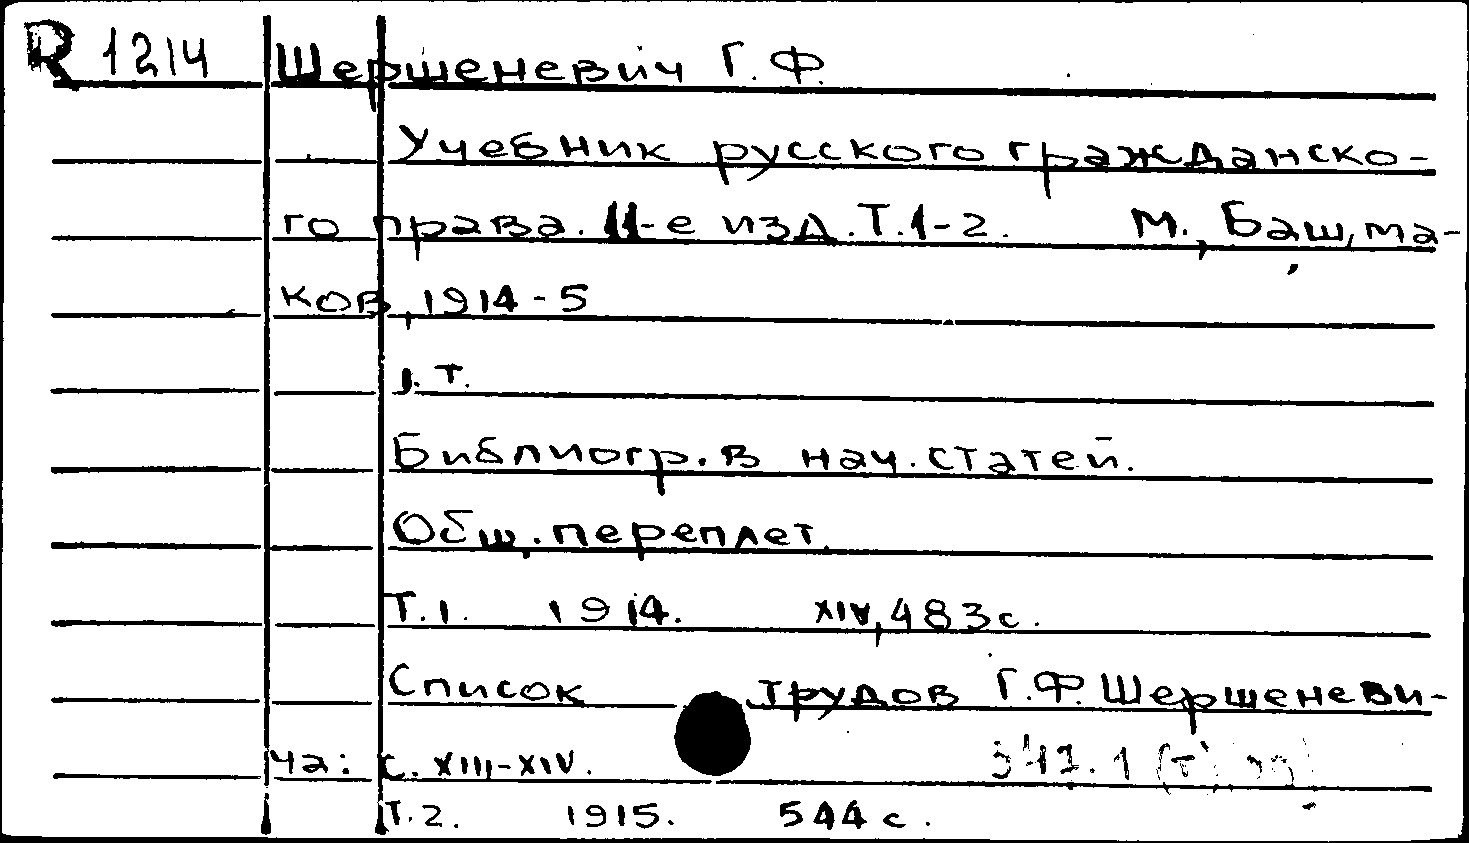 R 1214 Шершеневич Г. Ф.
Учебник русского гражданско-
го права. 11-е изд. Т.1-2. М., Башма-
ков, 1914-5
1. т.
Библиогр. в нач. статей.
Общ. переплет.
Т.1. 1914. XIV, 483 с.
Список трудов Г.Ф. Шершеневи-
ча: с. XIII-XIV.
Т.2. 1915. 544 с.